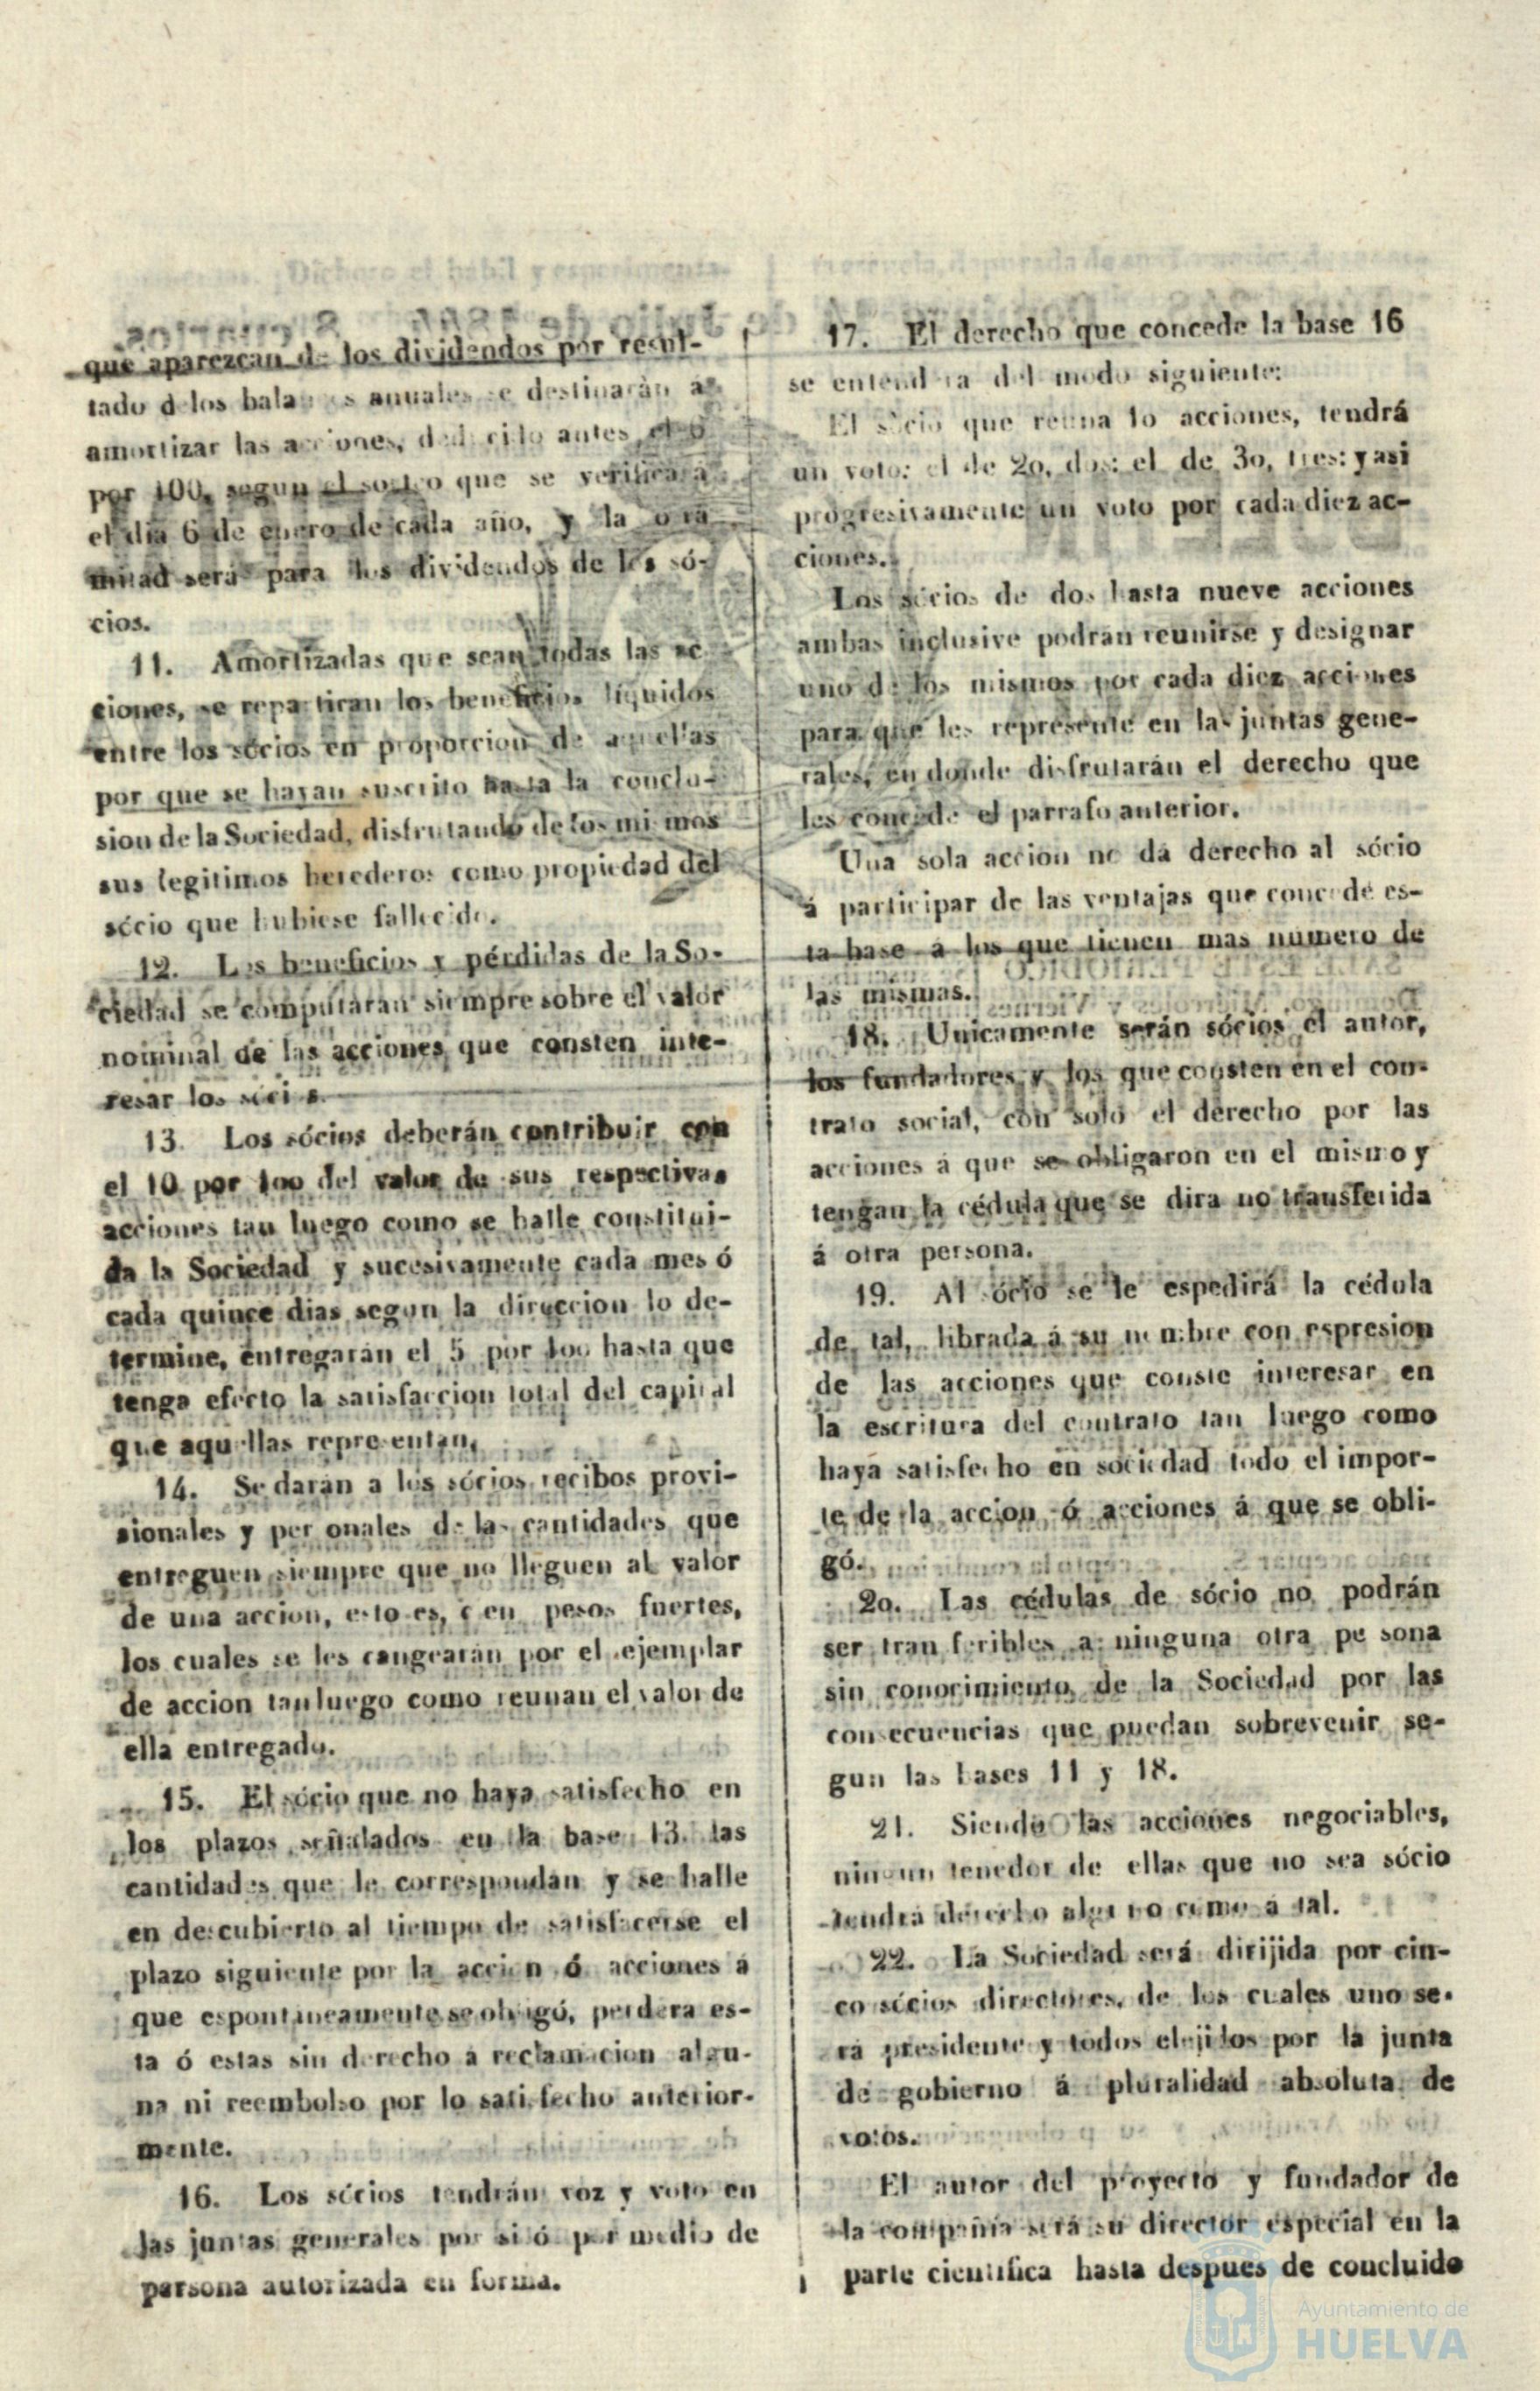 que aparezcan de los dividendos por resul-
tado de los balances anuales se destinarán á
amortizar las acciones, deducido antes el 6
por 100, segun el sorteo que se verificará
el dia 6 de enero de cada año, y la otra
mitad será para los dividendos de los só-
cios.
11. Amortizadas que sean todas las ac
ciones, se repartiran los beneficios líquidos
entre los sócios en proporcion de aquellas
por que se hayan suscrito hasta la conclu-
sion de la Sociedad, disfrutando de los mismos
sus legitimos herederos como propiedad del
sócio que hubiese fallecido.
12. Los beneficios y pérdidas de la So-
ciedad se computarán siempre sobre el valor
nominal de las acciones que consten inte-
resar los socios.
13 Los sócios deberán contribuir con
el 10 por 100 del valor de sus respectivas
acciones tan luego como se halle constitui-
da la Sociedad y sucesivamente cada mes ó
cada quince dias segun la direccion lo de-
termine, entregarán el 5 por 100 hasta que
tenga efecto la satisfaccion total del capital
que aquellas representan.
14. Se darán a los sócios recibos provi-
sionales y personales de las cantidades que
entreguen siempre que no lleguen al valor
de una accion, esto es, cien pesos fuertes,
los cuales se les cangearán por el ejemplar
de accion tan luego como reunan el valor de
ella entregado.
15. El sócio que no haya satisfecho en
los plazos señalados en la base 13. las
cantidades que le correspondan y se halle
en descubierto al tiempo de satisfacerse el
plazo siguiente por la accion ó acciones á
que espontáneamente se obligó, perderá es-
ta ó estas sin derecho á reclamacion algu-
na ni reembolso por lo satisfecho anterior-
mente.
16. Los sócios tendrán voz y voto en
las juntas generales por si ó por medio de
persona autorizada en forma.
17. El derecho que concede la base 16
se entenderá del modo siguiente:
El sócio que reuna 10 acciones, tendrá
un voto: el de 20, dos: el de 30, tres: y asi
progresivamente un voto por cada diez ac-
ciones.
Los sócios de dos hasta nueve acciones
ambas inclusive podrán reunirse y designar
uno de los mismos por cada diez acciones
para que les represente en las juntas gene-
rales, en donde disfrutarán el derecho que
les concede el parrafo anterior.
Una sola accion no dá derecho al sócio
á participar de las ventajas que concede es-
ta base á los que tienen mas número de
las mismas.
18. Unicamente serán sócios el autor,
los fundadores y los que consten en el con-
trato social, con solo el derecho por las
acciones á que se obligaron en el mismo y
tengan la cédula que se dira no transferida
á otra persona.
19. Al sócio se le espedirá la cédula
de tal, librada á su nombre con espresion
de las acciones que conste interesar en
la escritura del contrato tan luego como
haya satisfecho en sociedad todo el impor-
te de la accion ó acciones á que se obli-
gó.
20. Las cédulas de sócio no podrán
ser transferibles a ninguna otra persona
sin conocimiento de la Sociedad por las
consecuencias que puedan sobrevenir se-
gun las bases 11 y 18.
21. Siendo las acciones negociables,
ningun tenedor de ellas que no sea sócio
tendrá derecho alguno como á tal.
22. La Sociedad será dirijida por cin-
co sócios directores, de los cuales uno se-
rá presidente y todos elejidos por la junta
de gobierno á pluralidad absoluta de
votos.
El autor del proyecto y fundador de
la compañia será su director especial en la
parte cientifica hasta despues de concluido
Ayuntamiento de
HUELVA